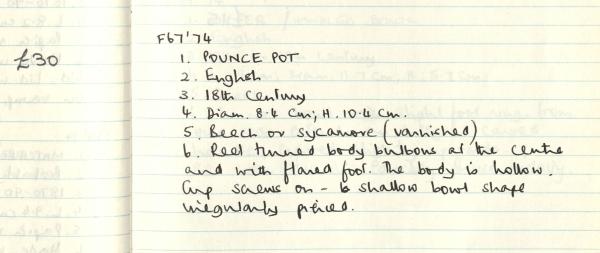 F67'74
£30
1. POUNCE POT
2. English
3. 18th Century
4. Diam. 8.4 cm; H. 10.4 cm.
5. Beech or sycamore (varnished)
6. Reel turned body bulbous at the centre
and with flared foot. The body is hollow.
Cup screws on – to shallow bowl shape
irregularly pierced.